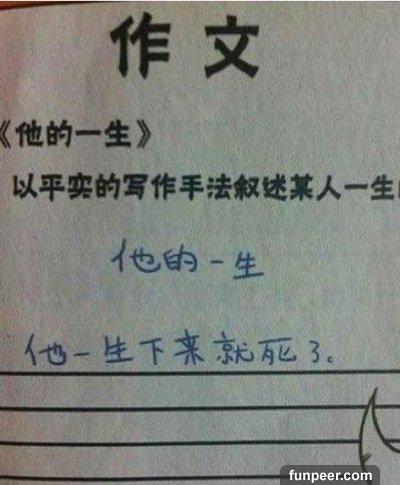 作文
《他的一生》
以平实的写作手法叙述某人一生
他的一生
他一生下来就死了。
funpeer.com